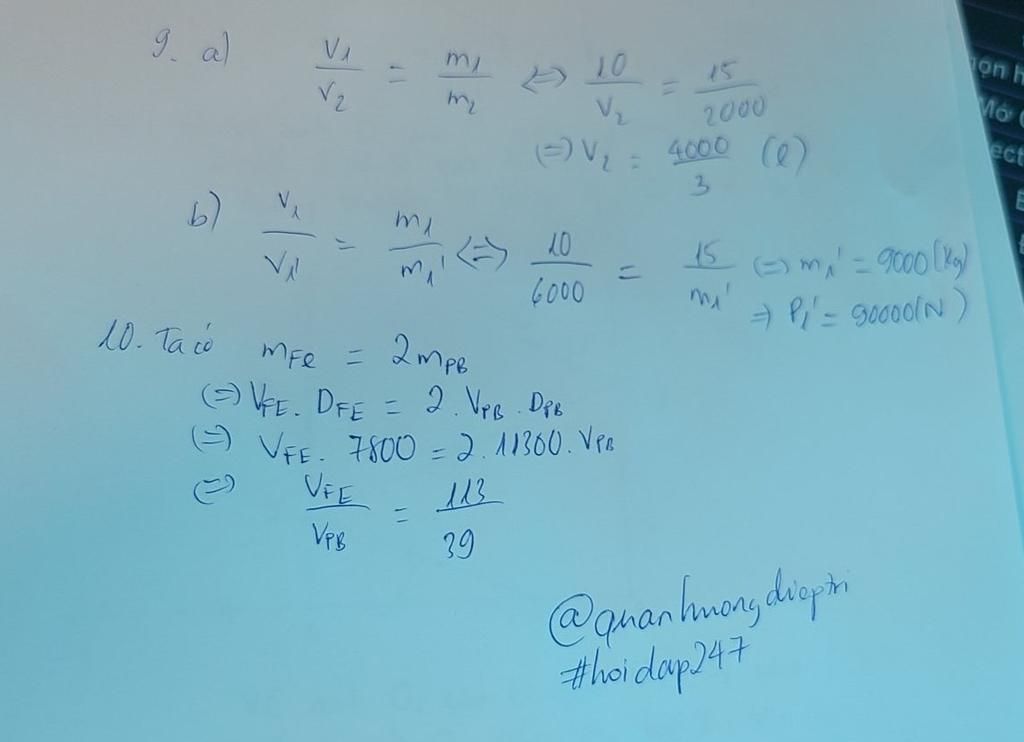 9. a) V1/V2 = m1/m2 <=> 10/V2 = 15/2000
(=) V2 = 4000/3 (l)
b) V1/V1' = m1/m1' <=> 10/6000 = 15/m1' (=) m1' = 9000 (kg)
=> P1' = 90000 (N)
10. Ta có mFe = 2mPB
(=) VFE. DFE = 2. VPB. DPB
(=) VFE. 7800 = 2. 11300. VPB
(=) VFE/VPB = 113/39
@quanhuongdieptri
#hoidap247
ọn h
Mở
ect